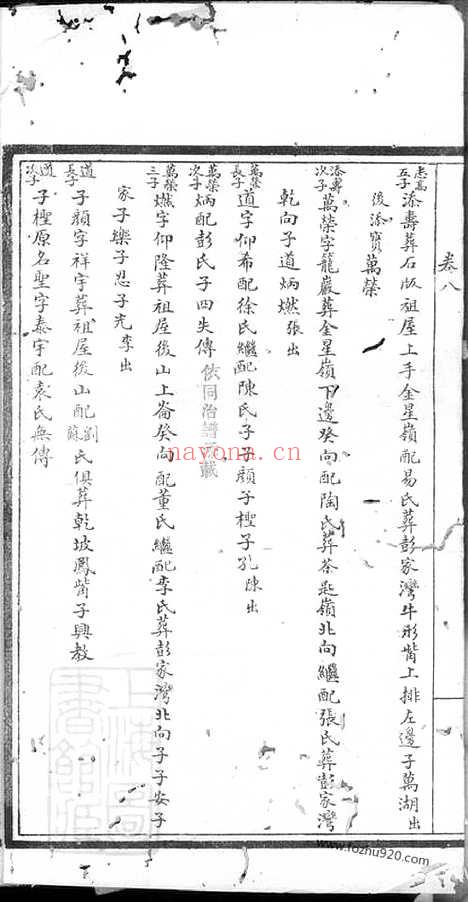 卷八
志高五子 添壽葬石版祖屋上手金星嶺配易氏葬彭家灣牛形觜上排左邊子萬湖出
後添寶萬榮
添壽次子 萬榮字龍巖葬金星嶺下邊癸向配陶氏葬茶匙嶺北向繼配張氏葬彭家灣
乾向子道炳燃張出
萬榮長子 道字仰希配徐氏繼配陳氏子子顔子檉子孔陳出
萬榮次子 炳配彭氏子四失傳依同治譜
萬榮三子 燃字仰隆葬祖屋後山上崙癸向配董氏繼配李氏葬彭家灣北向子子安子
家子樂子忍子先李出
道長子 子顔字祥宇葬祖屋後山配劉蘇氏俱葬乾坡鳳觜子興教
道次子 子檉原名聖字泰宇配袁氏無傳
上海圖書館藏
nayona.cn
www.fozhu920.com